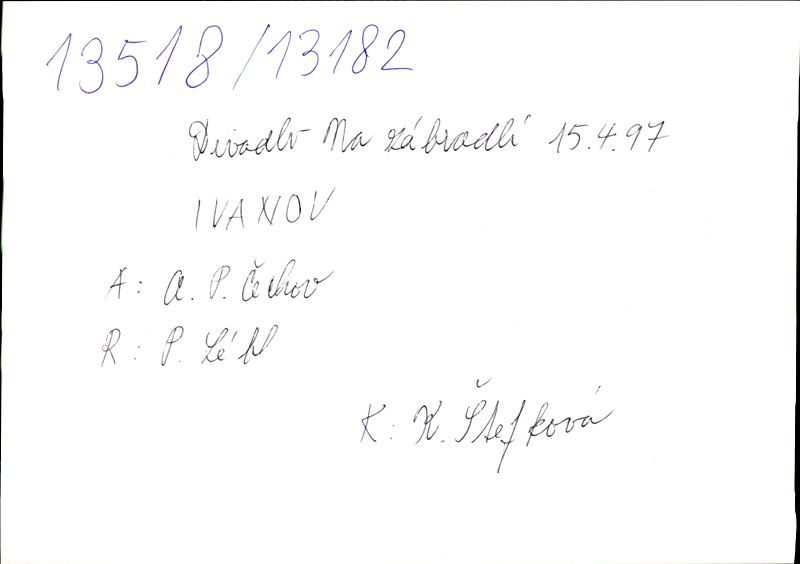 13518/13182
Divadlo Na zábradlí 15.4.97
IVANOV
A: A. P. Čechov
R: P. Lébl
K: K. Štefková